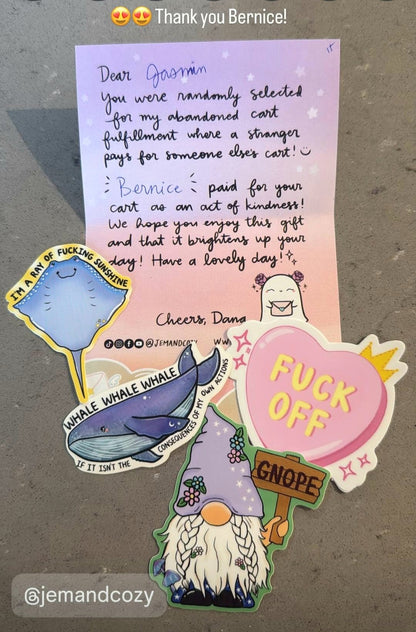 😍😍 Thank you Bernice!
Dear Jasmin
You were randomly selected
for my abandoned cart
fulfillment where a stranger
pays for someone else's cart!
Bernice paid for your
cart as an act of kindness!
We hope you enjoy this gift
and that it brightens up your
day! Have a lovely day!
Cheers, Dana
@JEMANDCOZY
I'M A RAY OF FUCKING SUNSHINE
WHALE WHALE WHALE
IF IT ISN'T THE
CONSEQUENCES OF MY OWN ACTIONS
FUCK
OFF
GNOPE
@jemandcozy